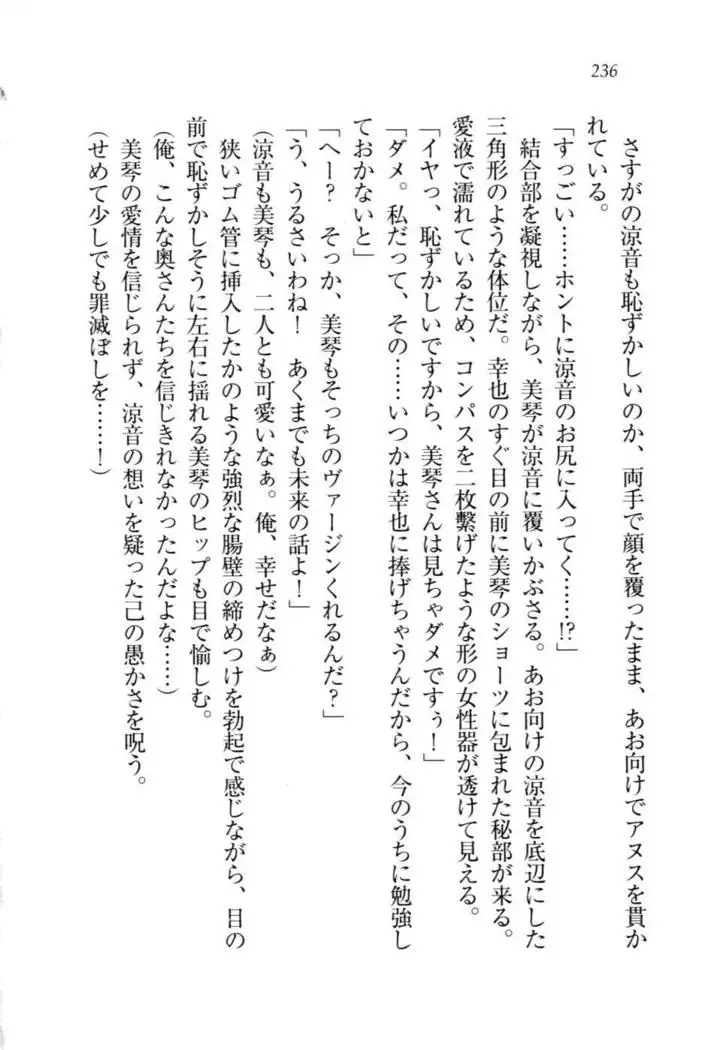 236
さすがの涼音も恥ずかしいのか、両手で顔を覆ったまま、あお向けでアヌスを貫か
れている。
「すっごい……ホントに涼音のお尻に入ってく……!?」
結合部を凝視しながら、美琴が涼音に覆いかぶさる。あお向けの涼音を底辺にした
三角形のような体位だ。幸也のすぐ目の前に美琴のショーツに包まれた秘部が来る。
愛液で濡れているため、コンパスを二枚繋げたような形の女性器が透けて見える。
「イヤっ、恥ずかしいですから、美琴さんは見ちゃダメですぅ！」
「ダメ。私だって、その……いつかは幸也に捧げちゃうんだから、今のうちに勉強し
ておかないと」
「へー？　そっか、美琴もそっちのヴァージンくれるんだ？」
「う、うるさいわね！　あくまでも未来の話よ！」
（涼音も美琴も、二人とも可愛いなぁ。俺、幸せだなぁ）
狭いゴム管に挿入したかのような強烈な腸壁の締めつけを勃起で感じながら、目の
前で恥ずかしそうに左右に揺れる美琴のヒップも目で愉しむ。
（俺、こんな奥さんたちを信じきれなかったんだよな……）
美琴の愛情を信じられず、涼音の想いを疑った己の愚かさを呪う。
（せめて少しでも罪滅ぼしを……！）